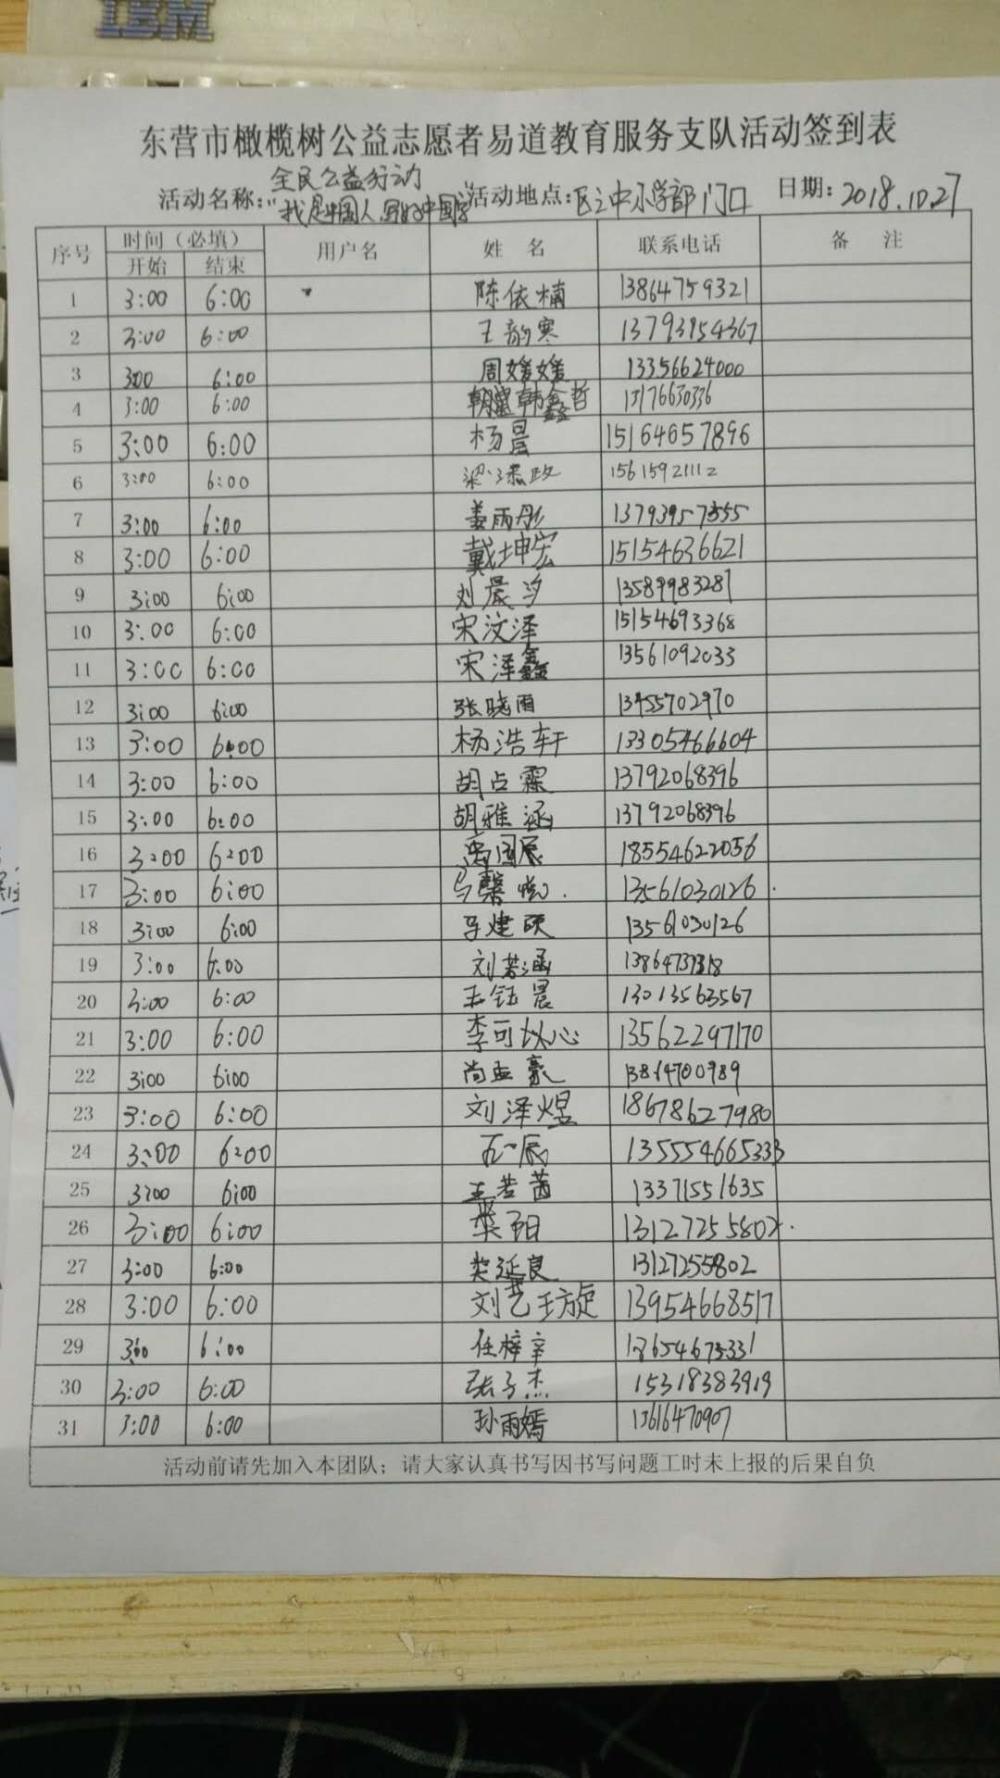 IBM
东营市橄榄树公益志愿者易道教育服务支队活动签到表
全民公益行动
活动名称:"我是中国人,写好中国字" 活动地点:区三中小学部门口 日期:2018.10.27
序号 时间(必填) 用户名 姓名 联系电话 备注
开始 结束
1 3:00 6:00 陈依楠 13864759321
2 3:00 6:00 王韵寒 13793954367
3 3:00 6:00 周媛媛 13356624000
4 3:00 6:00 韩鑫哲 13176630336
5 3:00 6:00 杨晨 15164657896
6 3:00 6:00 15615921112
7 3:00 6:00 姜雨彤 13793957355
8 3:00 6:00 戴坤宏 15154636621
9 3:00 6:00 刘晨汐 13589983287
10 3:00 6:00 宋汶泽 15154693368
11 3:00 6:00 宋泽鑫 13561092033
12 3:00 6:00 张晓雨 13455702970
13 3:00 6:00 杨浩轩 13305466604
14 3:00 6:00 胡占霖 13792068396
15 3:00 6:00 胡雅涵 13792068396
16 3:00 6:00 18554622056
17 3:00 6:00 马馨悦 13561030126
18 3:00 6:00 马建硕 13561030126
19 3:00 6:00 刘若涵
20 3:00 6:00 王钰晨 13013563567
21 3:00 6:00 李可以心 13562297170
22 3:00 6:00 尚孟豪
23 3:00 6:00 刘泽煜 18678627980
24 3:00 6:00 135554665333
25 3:00 6:00 王若茜 13371551635
26 3:00 6:00 13127255802
27 3:00 6:00 樊延良 13127255802
28 3:00 6:00 刘艺王旋 13954668517
29 3:00 6:00 任梓辛 13654675331
30 3:00 6:00 张子杰 15318383919
31 3:00 6:00 孙雨嫣 13616470907
活动前请先加入本团队;请大家认真书写因书写问题工时未上报的后果自负